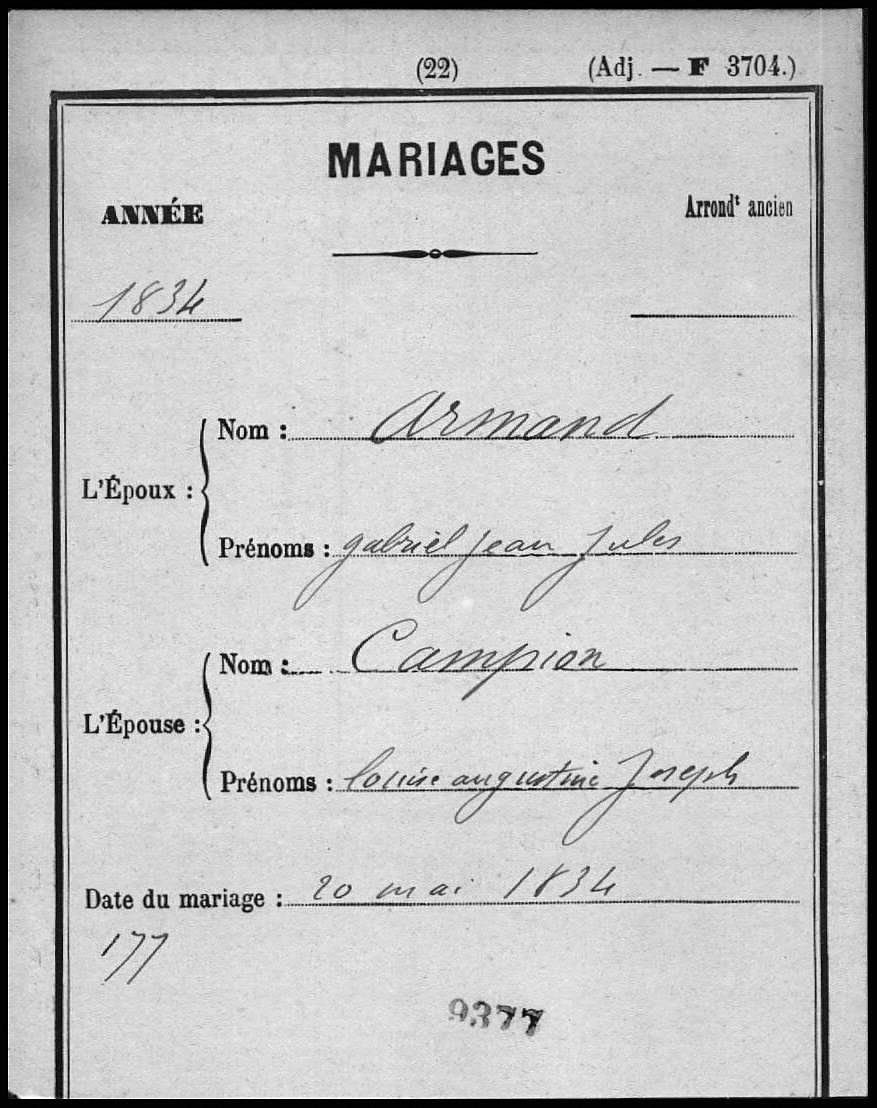 (22) (Adj. — F 3704.)
MARIAGES
ANNÉE Arrondt ancien
1834
Nom : Armand
L'Époux :
Prénoms : gabriel jean Jules
Nom : Campion
L'Épouse :
Prénoms : louise augustine Joseph
Date du mariage : 20 mai 1834
177
9377